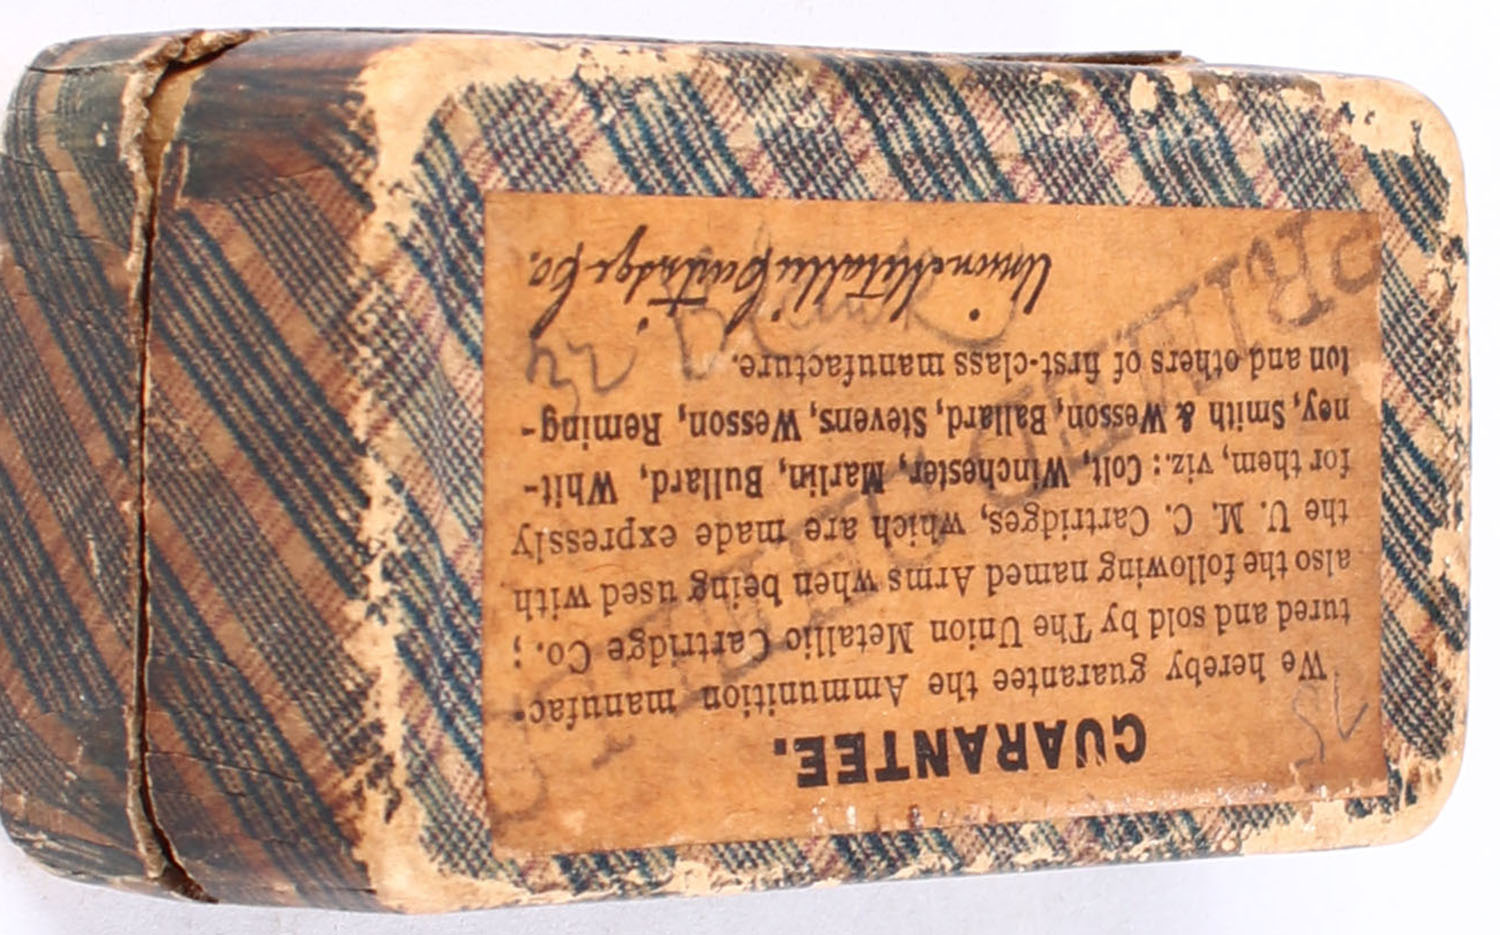 GUARANTEE.
We hereby guarantee the Ammunition manufac-
tured and sold by The Union Metallic Cartridge Co.;
also the following named Arms when being used with
the U. M. C. Cartridges, which are made expressly
for them, viz.: Colt, Winchester, Marlin, Bullard, Whit-
ney, Smith & Wesson, Ballard, Stevens, Wesson, Reming-
ton and others of first-class manufacture.
Union Metallic Cartridge Co.
PRIMED SHELLS
32